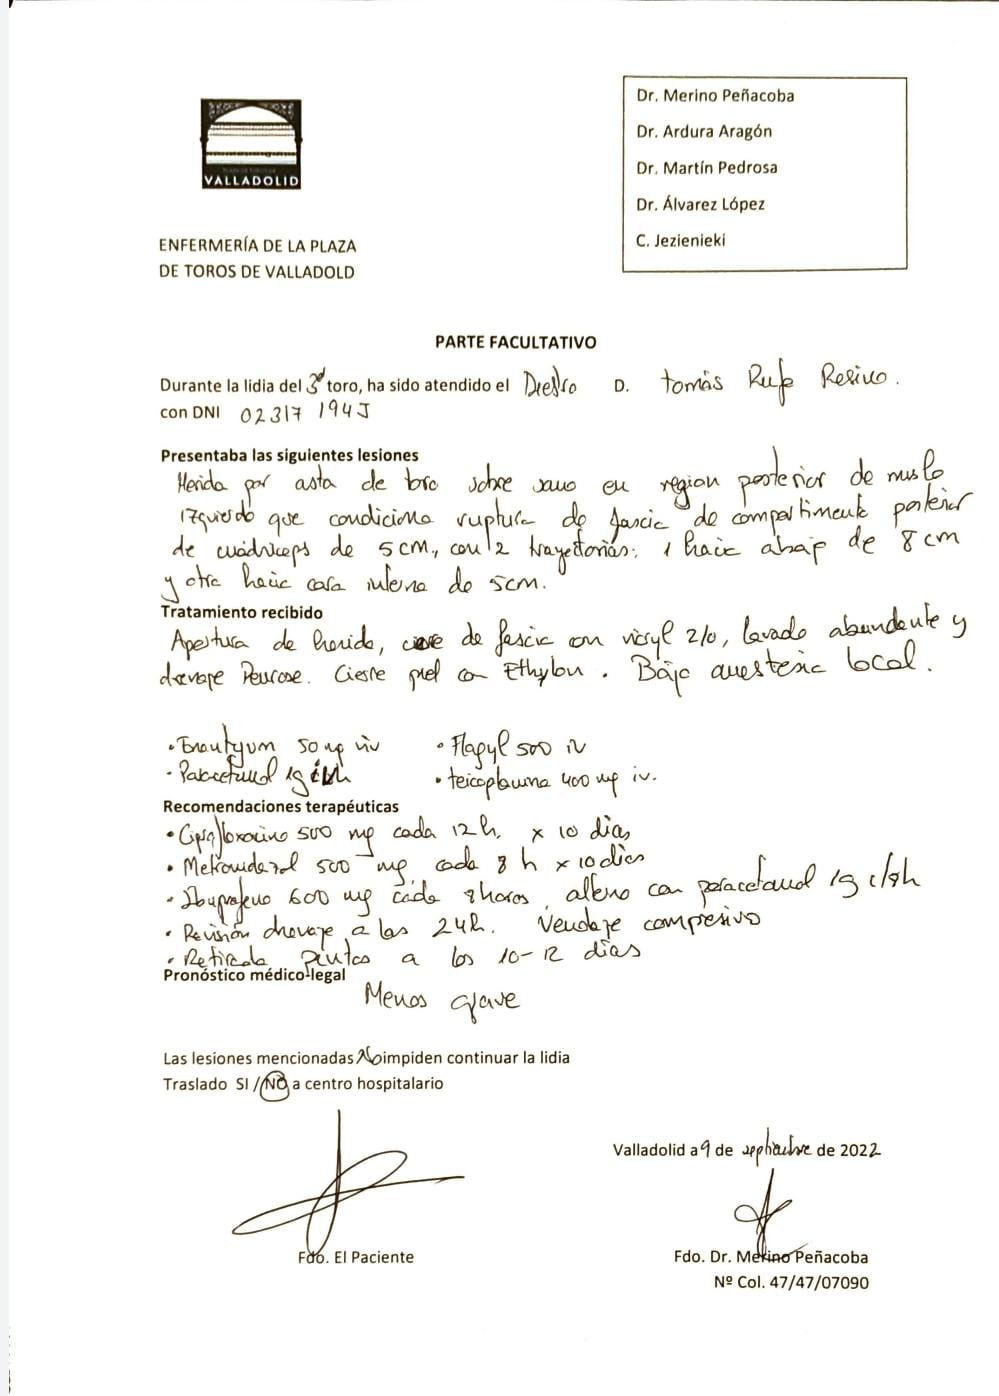 VALLADOLID
ENFERMERÍA DE LA PLAZA
DE TOROS DE VALLADOLD
Dr. Merino Peñacoba
Dr. Ardura Aragón
Dr. Martín Pedrosa
Dr. Álvarez López
C. Jezienieki
PARTE FACULTATIVO
Durante la lidia del 3º toro, ha sido atendido el Diestro D. Tomás Rufo Resino.
con DNI 02317194J
Presentaba las siguientes lesiones
Herida por asta de toro sobre sano en región posterior de muslo
izquierdo que condiciona ruptura de fascia de compartimento posterior
de cuádriceps de 5 cm, con 2 trayectorias: 1 hacia abajo de 8 cm
y otra hacia cara interna de 5 cm.
Tratamiento recibido
Apertura de herida, cierre de fascia con vicryl 2/0, lavado abundante y
drenaje Penrose. Cierre piel con Ethylon. Bajo anestesia local.
• Enantyum 50 mg • Flagyl 500 iv
• Paracetamol 1g • teicoplanina 400 mg iv.
Recomendaciones terapéuticas
• Ciprofloxacino 500 mg cada 12h. x 10 días
• Metronidazol 500 mg cada 8 h x 10 días
• Ibuprofeno 600 mg cada 8 horas, alterno con paracetamol 1g c/8h
• Revisión drenaje a las 24h. Vendaje compresivo
• Retirada puntos a los 10-12 días
Pronóstico médico-legal
Menos grave
Las lesiones mencionadas No impiden continuar la lidia
Traslado SI / NO a centro hospitalario
Valladolid a 9 de septiembre de 2022
Fdo. El Paciente
Fdo. Dr. Merino Peñacoba
Nº Col. 47/47/07090